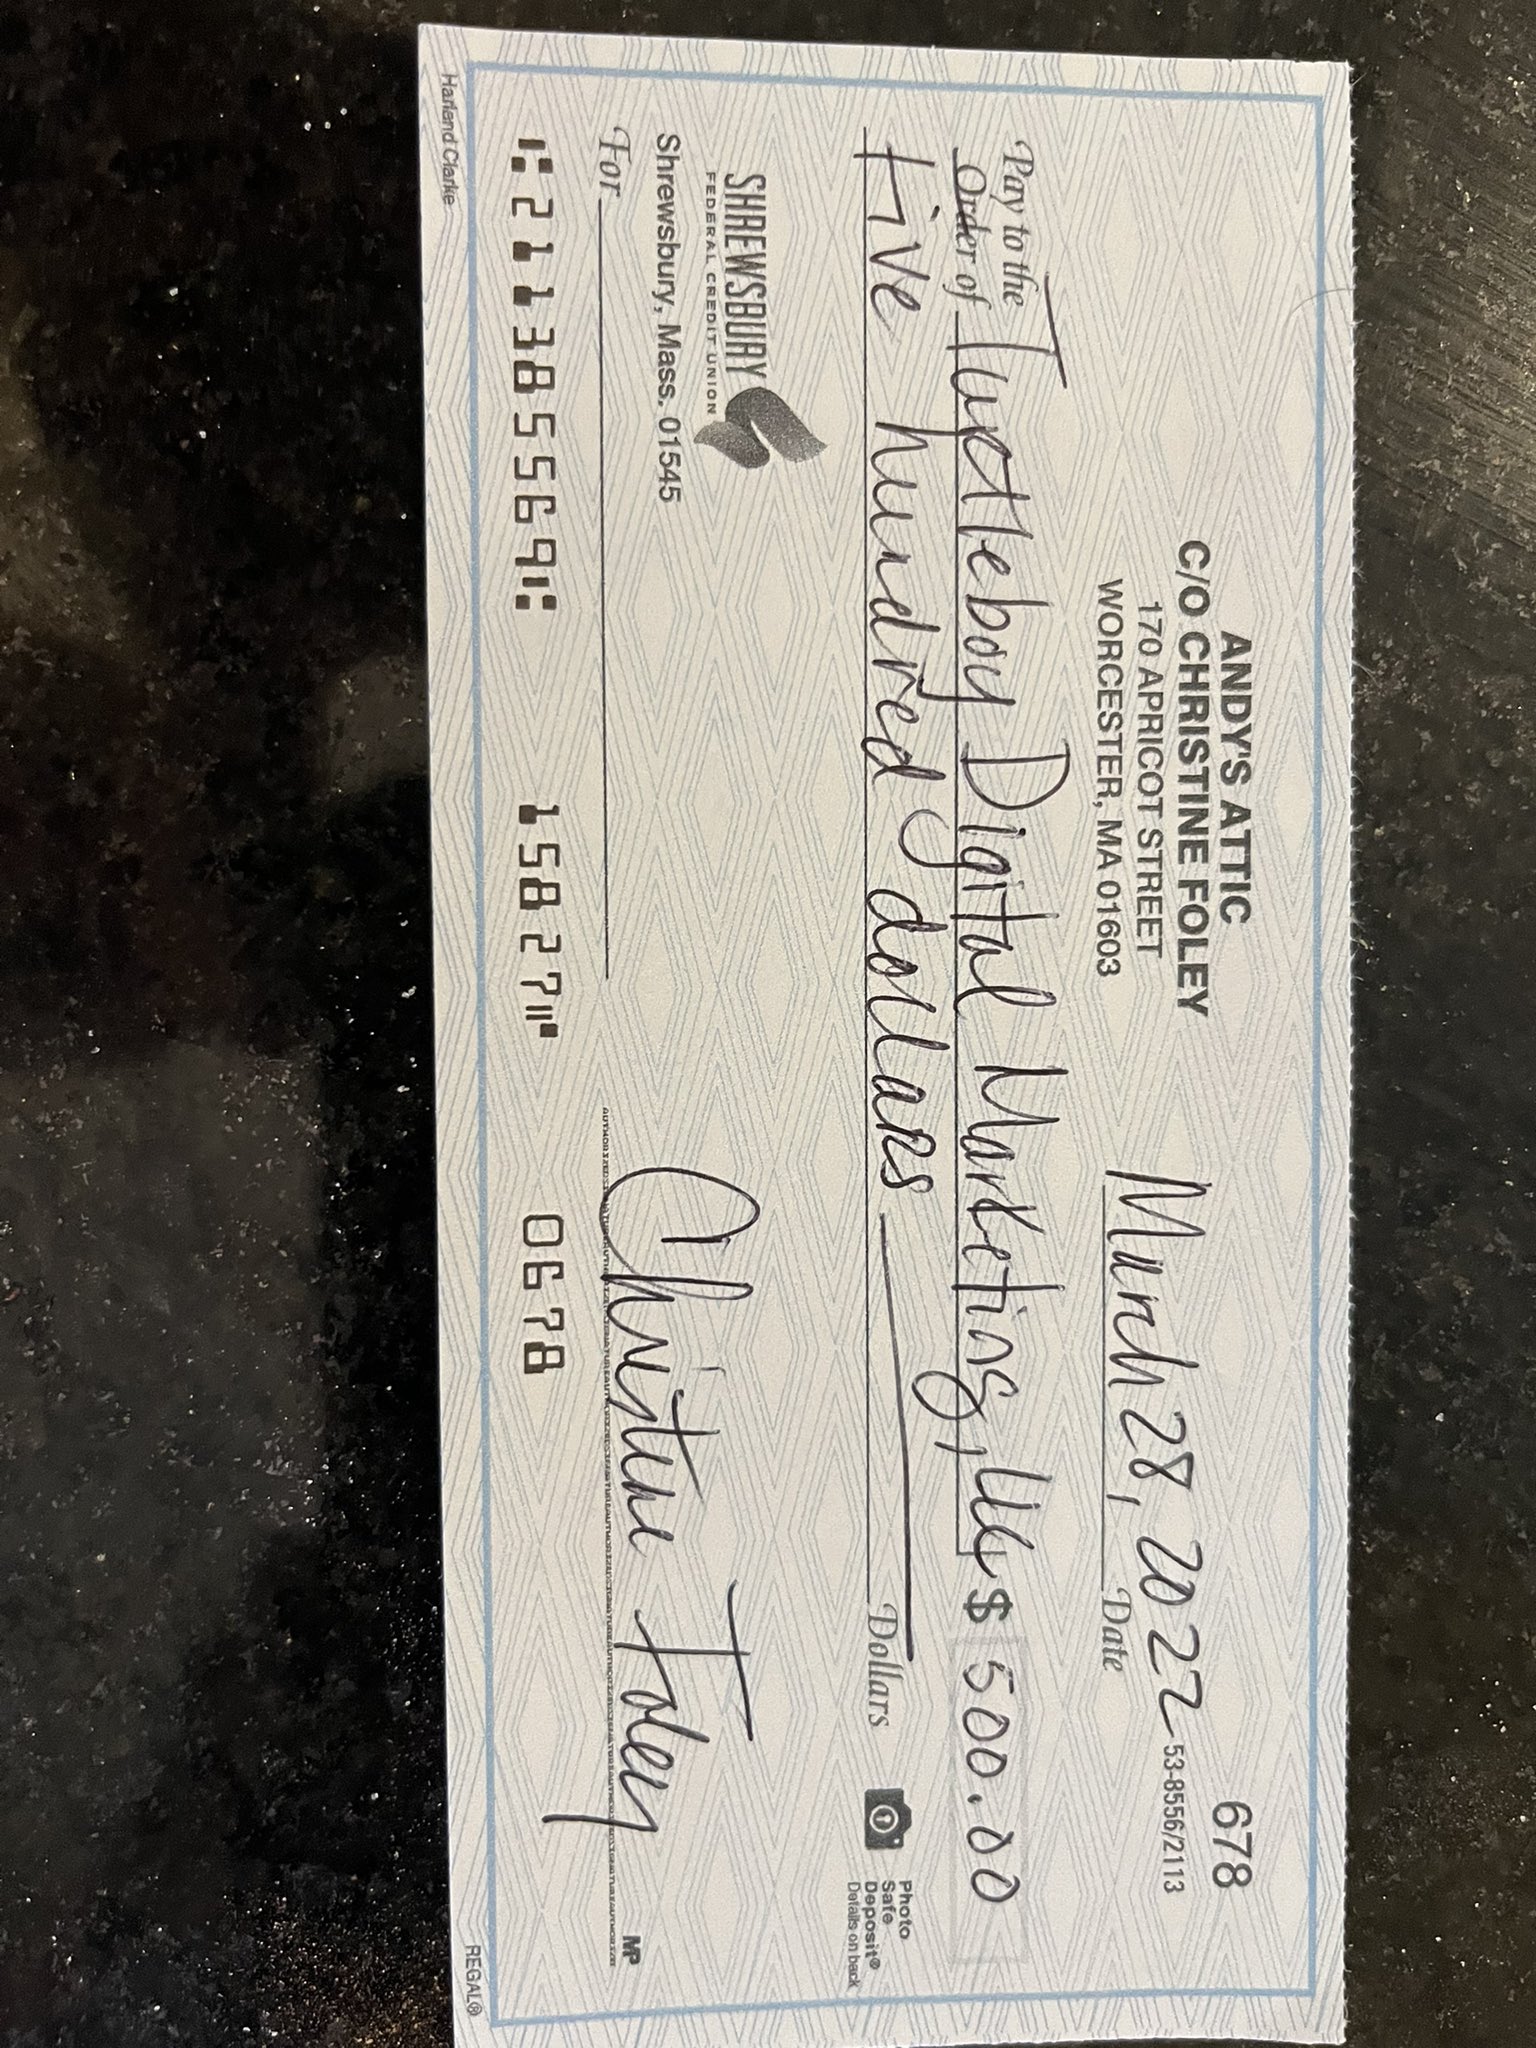 ANDY'S ATTIC
C/O CHRISTINE FOLEY
170 APRICOT STREET
WORCESTER, MA 01603
678
53-8556/2113
March 28, 2022 Date
Pay to the
Order of Turtleboy Digital Marketing, LLC $ 500.00
Five hundred dollars Dollars
Photo
Safe
Deposit®
Details on back
SHREWSBURY
FEDERAL CREDIT UNION
Shrewsbury, Mass. 01545
For
Christine Foley
MP
⑆211385569⑆ 15827⑈ 0678
Harland Clarke
REGAL®